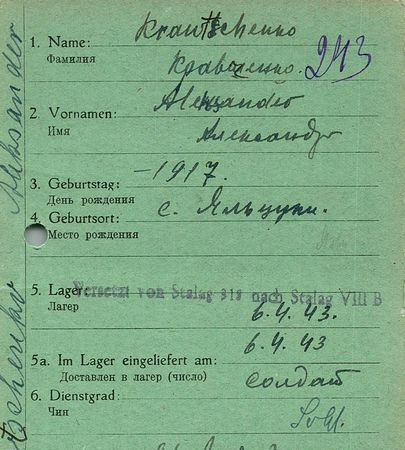 1. Name: Krautschenko
Фамилия Кравченко 243
2. Vornamen: Aleksander
Имя Александр
3. Geburtstag: -1917.
День рождения
4. Geburtsort: с.
Место рождения
5. Lager: Versetzt von Stalag 318 nach Stalag VIII B
Лагер 6.4.43.
6.4.43
5a. Im Lager eingeliefert am:
Доставлен в лагер (число) солдат
6. Dienstgrad:
Чин Sold.
Aleksander